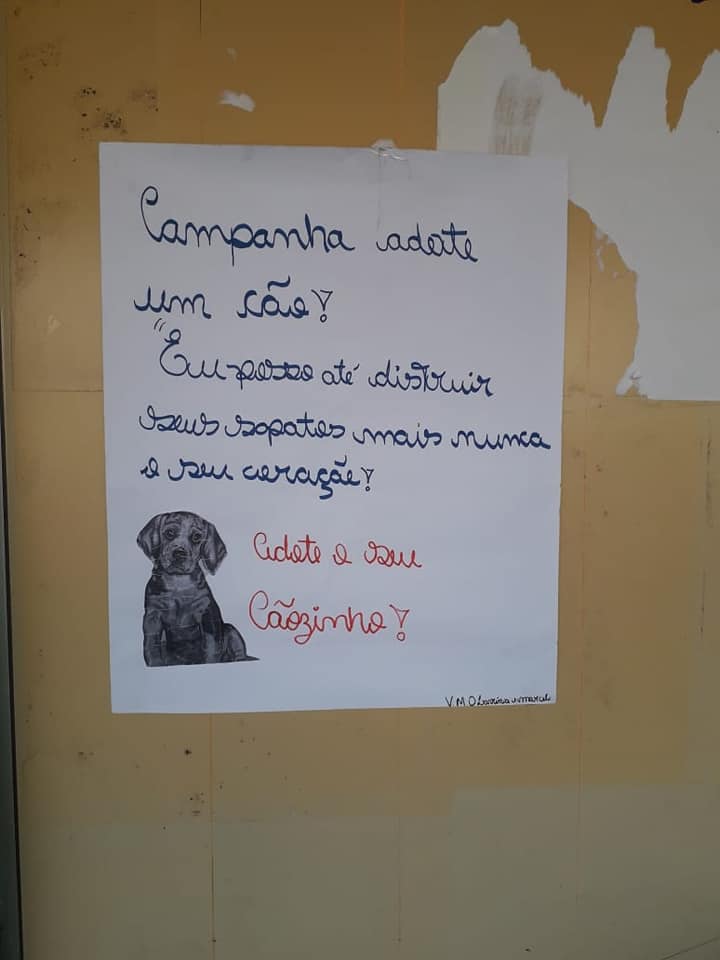 Campanha adote
um cão!
"Eu posso até distruir
seus sapatos mais nunca
o seu coração!
Adote o seu
Cãozinho!
V.M.O